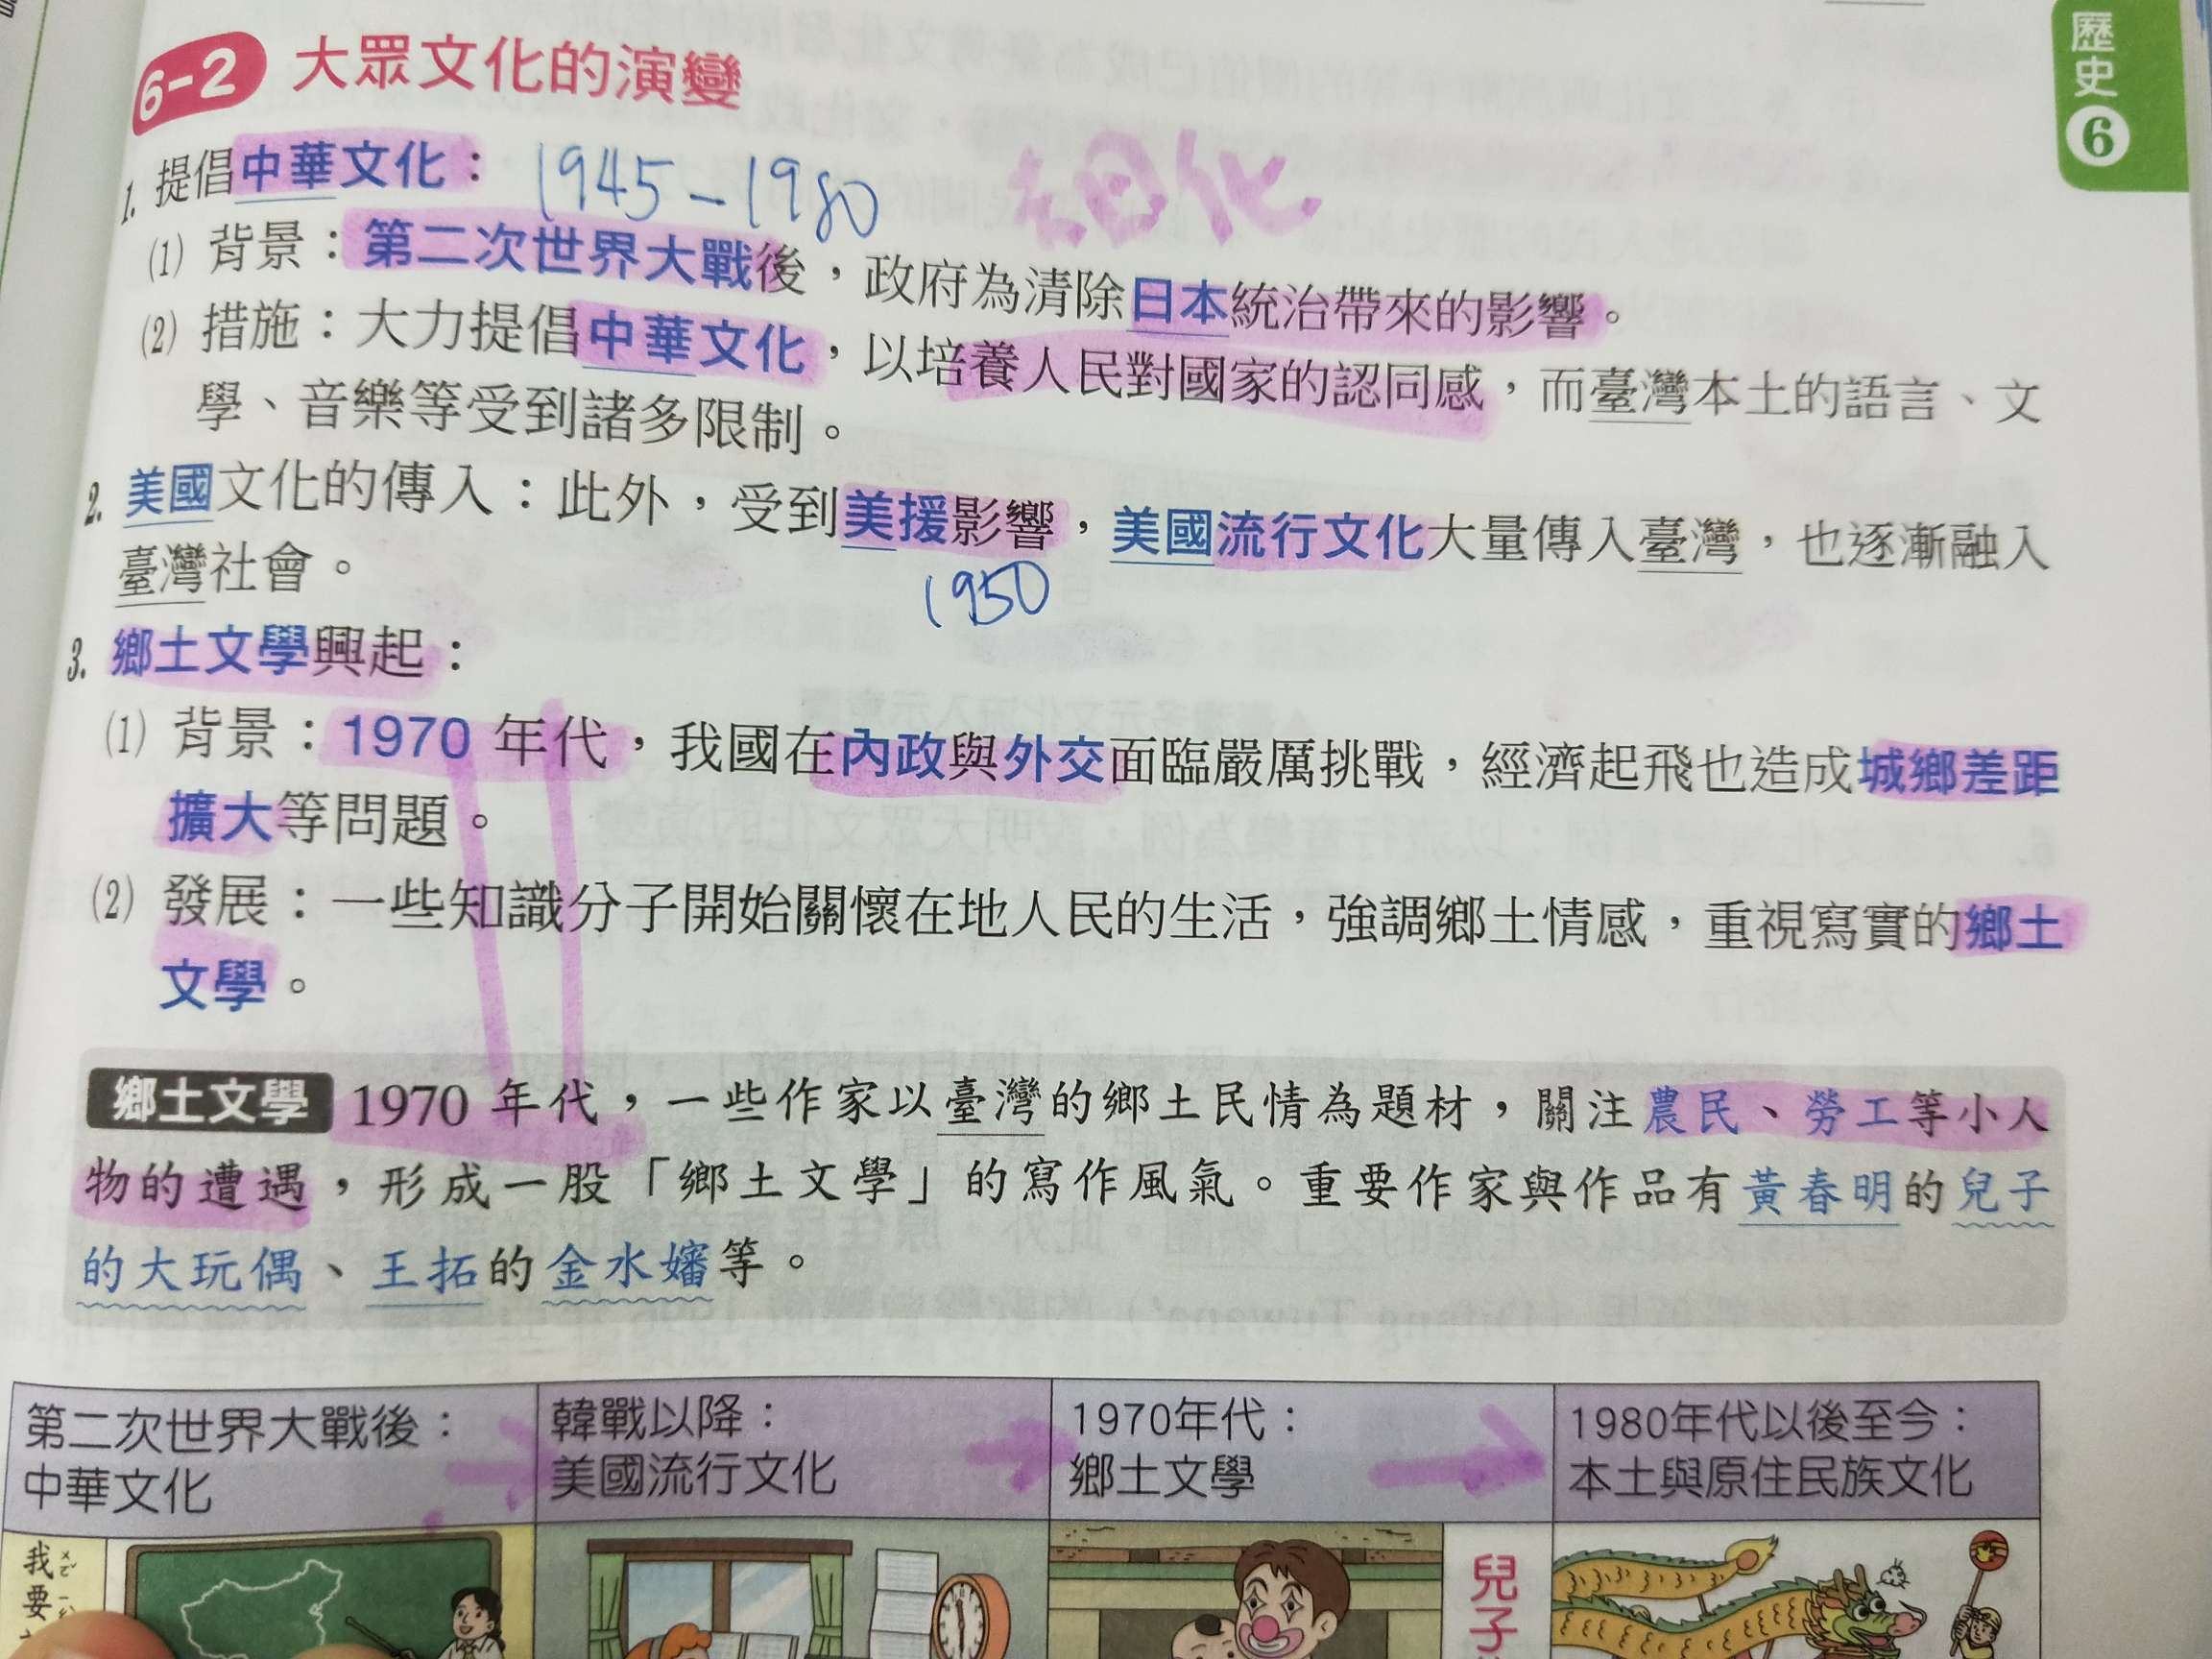 歷史6
6-2 大眾文化的演變
1. 提倡中華文化：1945-1980
(1) 背景：第二次世界大戰後，政府為清除日本統治帶來的影響。
(2) 措施：大力提倡中華文化，以培養人民對國家的認同感，而臺灣本土的語言、文
學、音樂等受到諸多限制。
2. 美國文化的傳入：此外，受到美援影響，美國流行文化大量傳入臺灣，也逐漸融入
1950
臺灣社會。
3. 鄉土文學興起：
(1) 背景：1970 年代，我國在內政與外交面臨嚴厲挑戰，經濟起飛也造成城鄉差距
擴大等問題。
(2) 發展：一些知識分子開始關懷在地人民的生活，強調鄉土情感，重視寫實的鄉土
文學。
鄉土文學 1970 年代，一些作家以臺灣的鄉土民情為題材，關注農民、勞工等小人
物的遭遇，形成一股「鄉土文學」的寫作風氣。重要作家與作品有黃春明的兒子
的大玩偶、王拓的金水嬸等。
第二次世界大戰後：
中華文化
韓戰以降：
美國流行文化
1970年代：
鄉土文學
1980年代以後至今：
本土與原住民族文化
我要
兒子